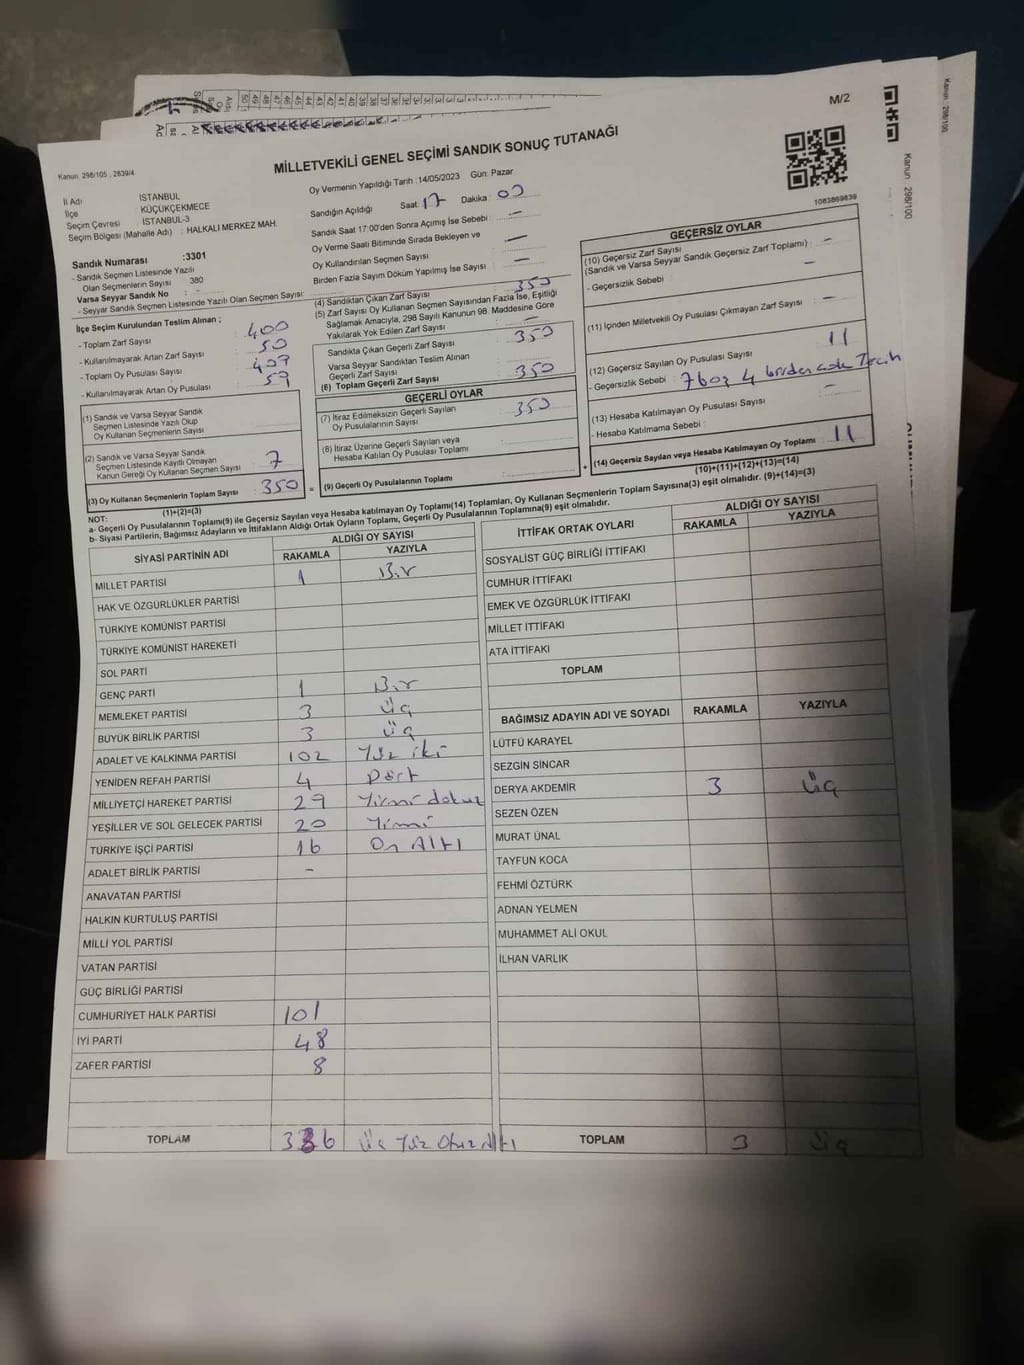 M/2
Kanun: 298/105 , 2839/4
MİLLETVEKİLİ GENEL SEÇİMİ SANDIK SONUÇ TUTANAĞI
İl Adı İSTANBUL
İlçe KÜÇÜKÇEKMECE
Seçim Çevresi İSTANBUL-3
Seçim Bölgesi (Mahalle Adı) : HALKALI MERKEZ MAH.
Oy Vermenin Yapıldığı Tarih :14/05/2023 Gün: Pazar
Sandığın Açıldığı Saat: 17 Dakika: 00
Sandık Saat 17:00'den Sonra Açımış İse Sebebi : -
Oy Verme Saati Bitiminde Sırada Bekleyen ve
Oy Kullandırılan Seçmen Sayısı : -
Birden Fazla Sayım Döküm Yapılmış İse Sayısı : -
1083869839
Kanun : 298/100
Kanun : 298/100
Sandık Numarası :3301
- Sandık Seçmen Listesinde Yazılı
Olan Seçmenlerin Sayısı 380
Varsa Seyyar Sandık No : -
- Seyyar Sandık Seçmen Listesinde Yazılı Olan Seçmen Sayısı:
İlçe Seçim Kurulundan Teslim Alınan ;
- Toplam Zarf Sayısı : 400
- Kullanılmayarak Artan Zarf Sayısı : 50
- Toplam Oy Pusulası Sayısı : 409
- Kullanılmayarak Artan Oy Pusulası : 59
(1) Sandık ve Varsa Seyyar Sandık
Seçmen Listesinde Yazılı Olup
Oy Kullanan Seçmenlerin Sayısı
(2) Sandık ve Varsa Seyyar Sandık
Seçmen Listesinde Kayıtlı Olmayan
Kanun Gereği Oy Kullanan Seçmen Sayısı : 7
(3) Oy Kullanan Seçmenlerin Toplam Sayısı : 350
(1)+(2)=(3)
(4) Sandıktan Çıkan Zarf Sayısı : 350
(5) Zarf Sayısı Oy Kullanan Seçmen Sayısından Fazla İse, Eşitliği
Sağlamak Amacıyla, 298 Sayılı Kanunun 98. Maddesine Göre
Yakılarak Yok Edilen Zarf Sayısı : -
Sandıkta Çıkan Geçerli Zarf Sayısı : 350
Varsa Seyyar Sandıktan Teslim Alınan
Geçerli Zarf Sayısı
(6) Toplam Geçerli Zarf Sayısı : 350
GEÇERLİ OYLAR
(7) İtiraz Edilmeksizin Geçerli Sayılan
Oy Pusulasının Sayısı : 350
(8) İtiraz Üzerine Geçerli Sayılan veya
Hesaba Katılan Oy Pusulası Toplamı
(9) Geçerli Oy Pusulalarının Toplamı
GEÇERSİZ OYLAR
(10) Geçersiz Zarf Sayısı
(Sandık ve Varsa Seyyar Sandık Geçersiz Zarf Toplamı) : -
- Geçersizlik Sebebi : -
(11) İçinden Milletvekili Oy Pusulası Çıkmayan Zarf Sayısı : -
(12) Geçersiz Sayılan Oy Pusulası Sayısı : 11
- Geçersizlik Sebebi : 7 boş 4 birden çok
(13) Hesaba Katılmayan Oy Pusulası Sayısı : -
- Hesaba Katılmama Sebebi :
(14) Geçersiz Sayılan veya Hesaba Katılmayan Oy Toplamı : 11
(10)+(11)+(12)+(13)=(14)
NOT:
a- Geçerli Oy Pusulalarının Toplamı(9) ile Geçersiz Sayılan veya Hesaba katılmayan Oy Toplamı(14) Toplamları, Oy Kullanan Seçmenlerin Toplam Sayısına(3) eşit olmalıdır. (9)+(14)=(3)
b- Siyasi Partilerin, Bağımsız Adayların ve İttifakların Aldığı Ortak Oyların Toplamı, Geçerli Oy Pusulalarının Toplamına(9) eşit olmalıdır.
SİYASİ PARTİNİN ADI ALDIĞI OY SAYISI
RAKAMLA YAZIYLA
MİLLET PARTİSİ 1 Bir
HAK VE ÖZGÜRLÜKLER PARTİSİ
TÜRKİYE KOMÜNİST PARTİSİ
TÜRKİYE KOMÜNİST HAREKETİ
SOL PARTİ
GENÇ PARTİ 1 Bir
MEMLEKET PARTİSİ 3 Üç
BÜYÜK BİRLİK PARTİSİ 3 Üç
ADALET VE KALKINMA PARTİSİ 102 Yüz iki
YENİDEN REFAH PARTİSİ 4 Dört
MİLLİYETÇİ HAREKET PARTİSİ 29 Yirmi dokuz
YEŞİLLER VE SOL GELECEK PARTİSİ 20 Yirmi
TÜRKİYE İŞÇİ PARTİSİ 16 On Altı
ADALET BİRLİK PARTİSİ -
ANAVATAN PARTİSİ
HALKIN KURTULUŞ PARTİSİ
MİLLİ YOL PARTİSİ
VATAN PARTİSİ
GÜÇ BİRLİĞİ PARTİSİ
CUMHURİYET HALK PARTİSİ 101
İYİ PARTİ 48
ZAFER PARTİSİ 8
TOPLAM 336 Üç Yüz Otuz Altı
İTTİFAK ORTAK OYLARI ALDIĞI OY SAYISI
RAKAMLA YAZIYLA
SOSYALİST GÜÇ BİRLİĞİ İTTİFAKI
CUMHUR İTTİFAKI
EMEK VE ÖZGÜRLÜK İTTİFAKI
MİLLET İTTİFAKI
ATA İTTİFAKI
TOPLAM
BAĞIMSIZ ADAYIN ADI VE SOYADI RAKAMLA YAZIYLA
LÜTFÜ KARAYEL
SEZGİN SİNCAR
DERYA AKDEMİR 3 Üç
SEZEN ÖZEN
MURAT ÜNAL
TAYFUN KOCA
FEHMİ ÖZTÜRK
ADNAN YELMEN
MUHAMMET ALİ OKUL
İLHAN VARLIK
TOPLAM 3 Üç